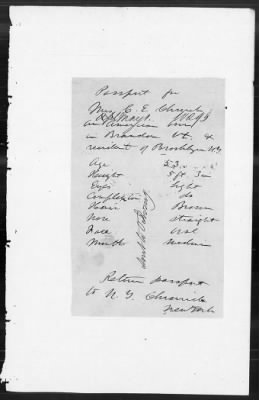 Passport for
Mrs C. E. Church
an American born
in Brandon Vt. &
resident of Brooklyn N.Y.
Age 53
Height 5 ft. 3 in
Eyes light
Complexion do
Hair Brown
Nose straight
Face oval
Mouth medium
Return passport
to N. Y. Chronicle
New York